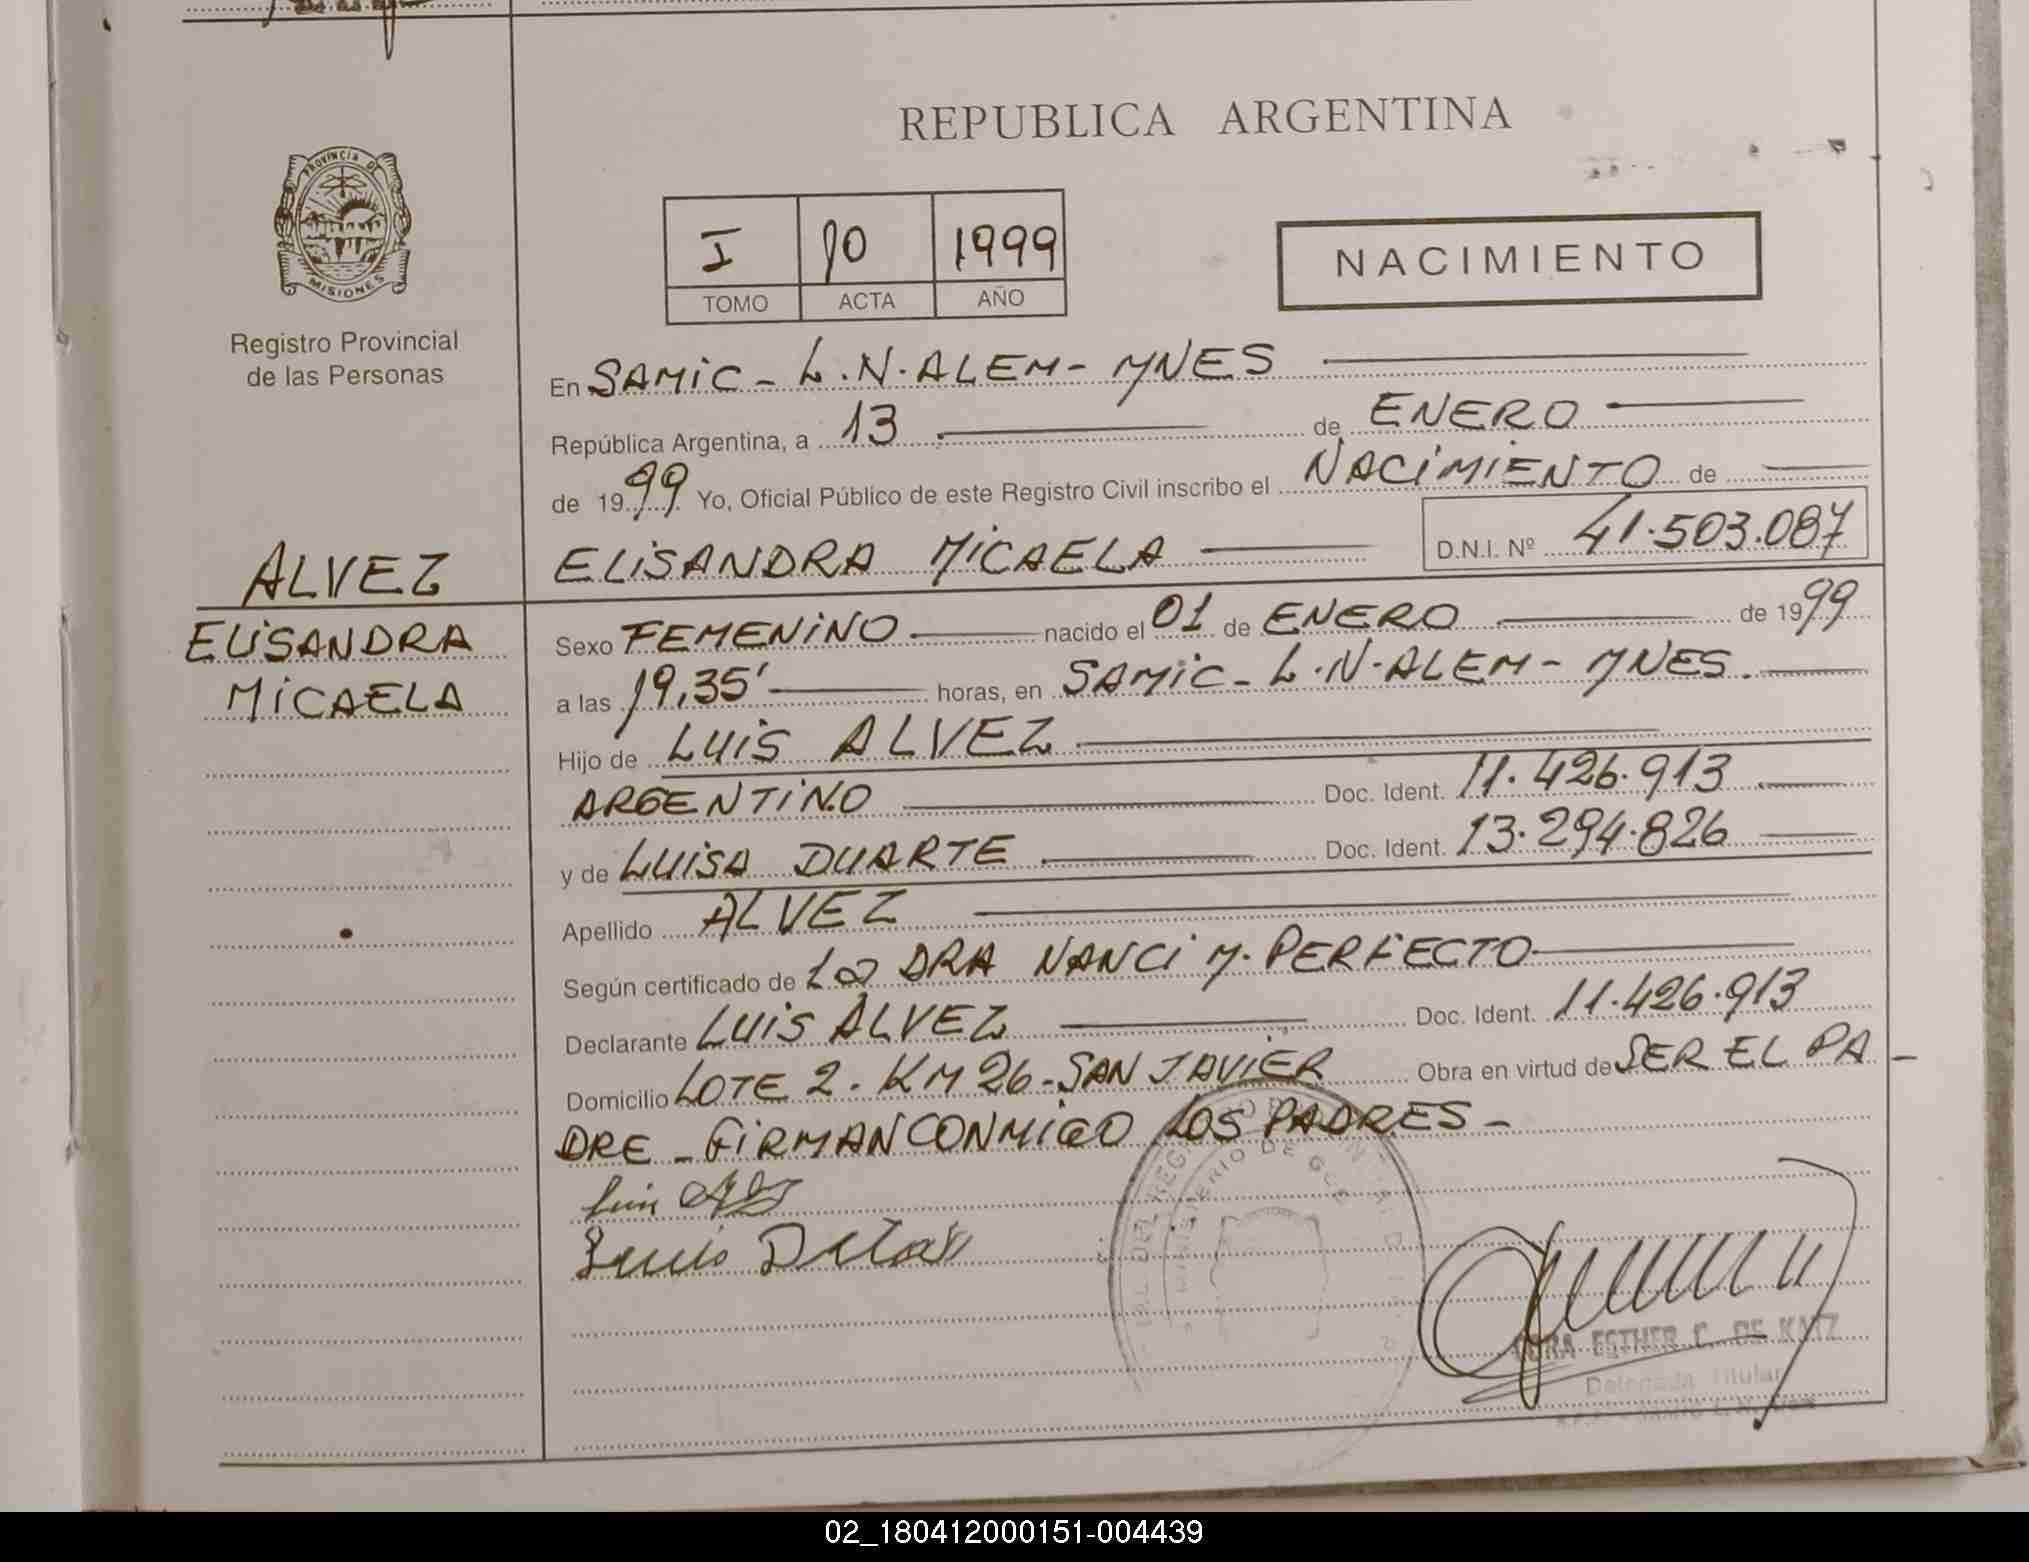 REPUBLICA ARGENTINA
PROVINCIA DE
MISIONES
Registro Provincial
de las Personas
I 10 1999
TOMO ACTA AÑO
NACIMIENTO
En SAMIC - L.N.ALEM - MNES
República Argentina, a 13 de ENERO
de 1999 Yo, Oficial Público de este Registro Civil inscribo el NACIMIENTO de
ELISANDRA MICAELA D.N.I. Nº 41.503.087
ALVEZ
ELISANDRA
MICAELA
Sexo FEMENINO nacido el 01 de ENERO de 1999
a las 19,35' horas, en SAMIC - L.N.ALEM - MNES.
Hijo de LUIS ALVEZ
ARGENTINO Doc. Ident. 11.426.913
y de LUISA DUARTE Doc. Ident. 13.294.826
Apellido ALVEZ
Según certificado de La DRA NANCI M. PERFECTO
Declarante LUIS ALVEZ Doc. Ident. 11.426.913
Domicilio LOTE 2. KM 26 - SAN JAVIER Obra en virtud de SER EL PA -
DRE - FIRMAN CONMIGO LOS PADRES -
ESTHER C. DE KATZ
Delegada Titular
02_180412000151-004439